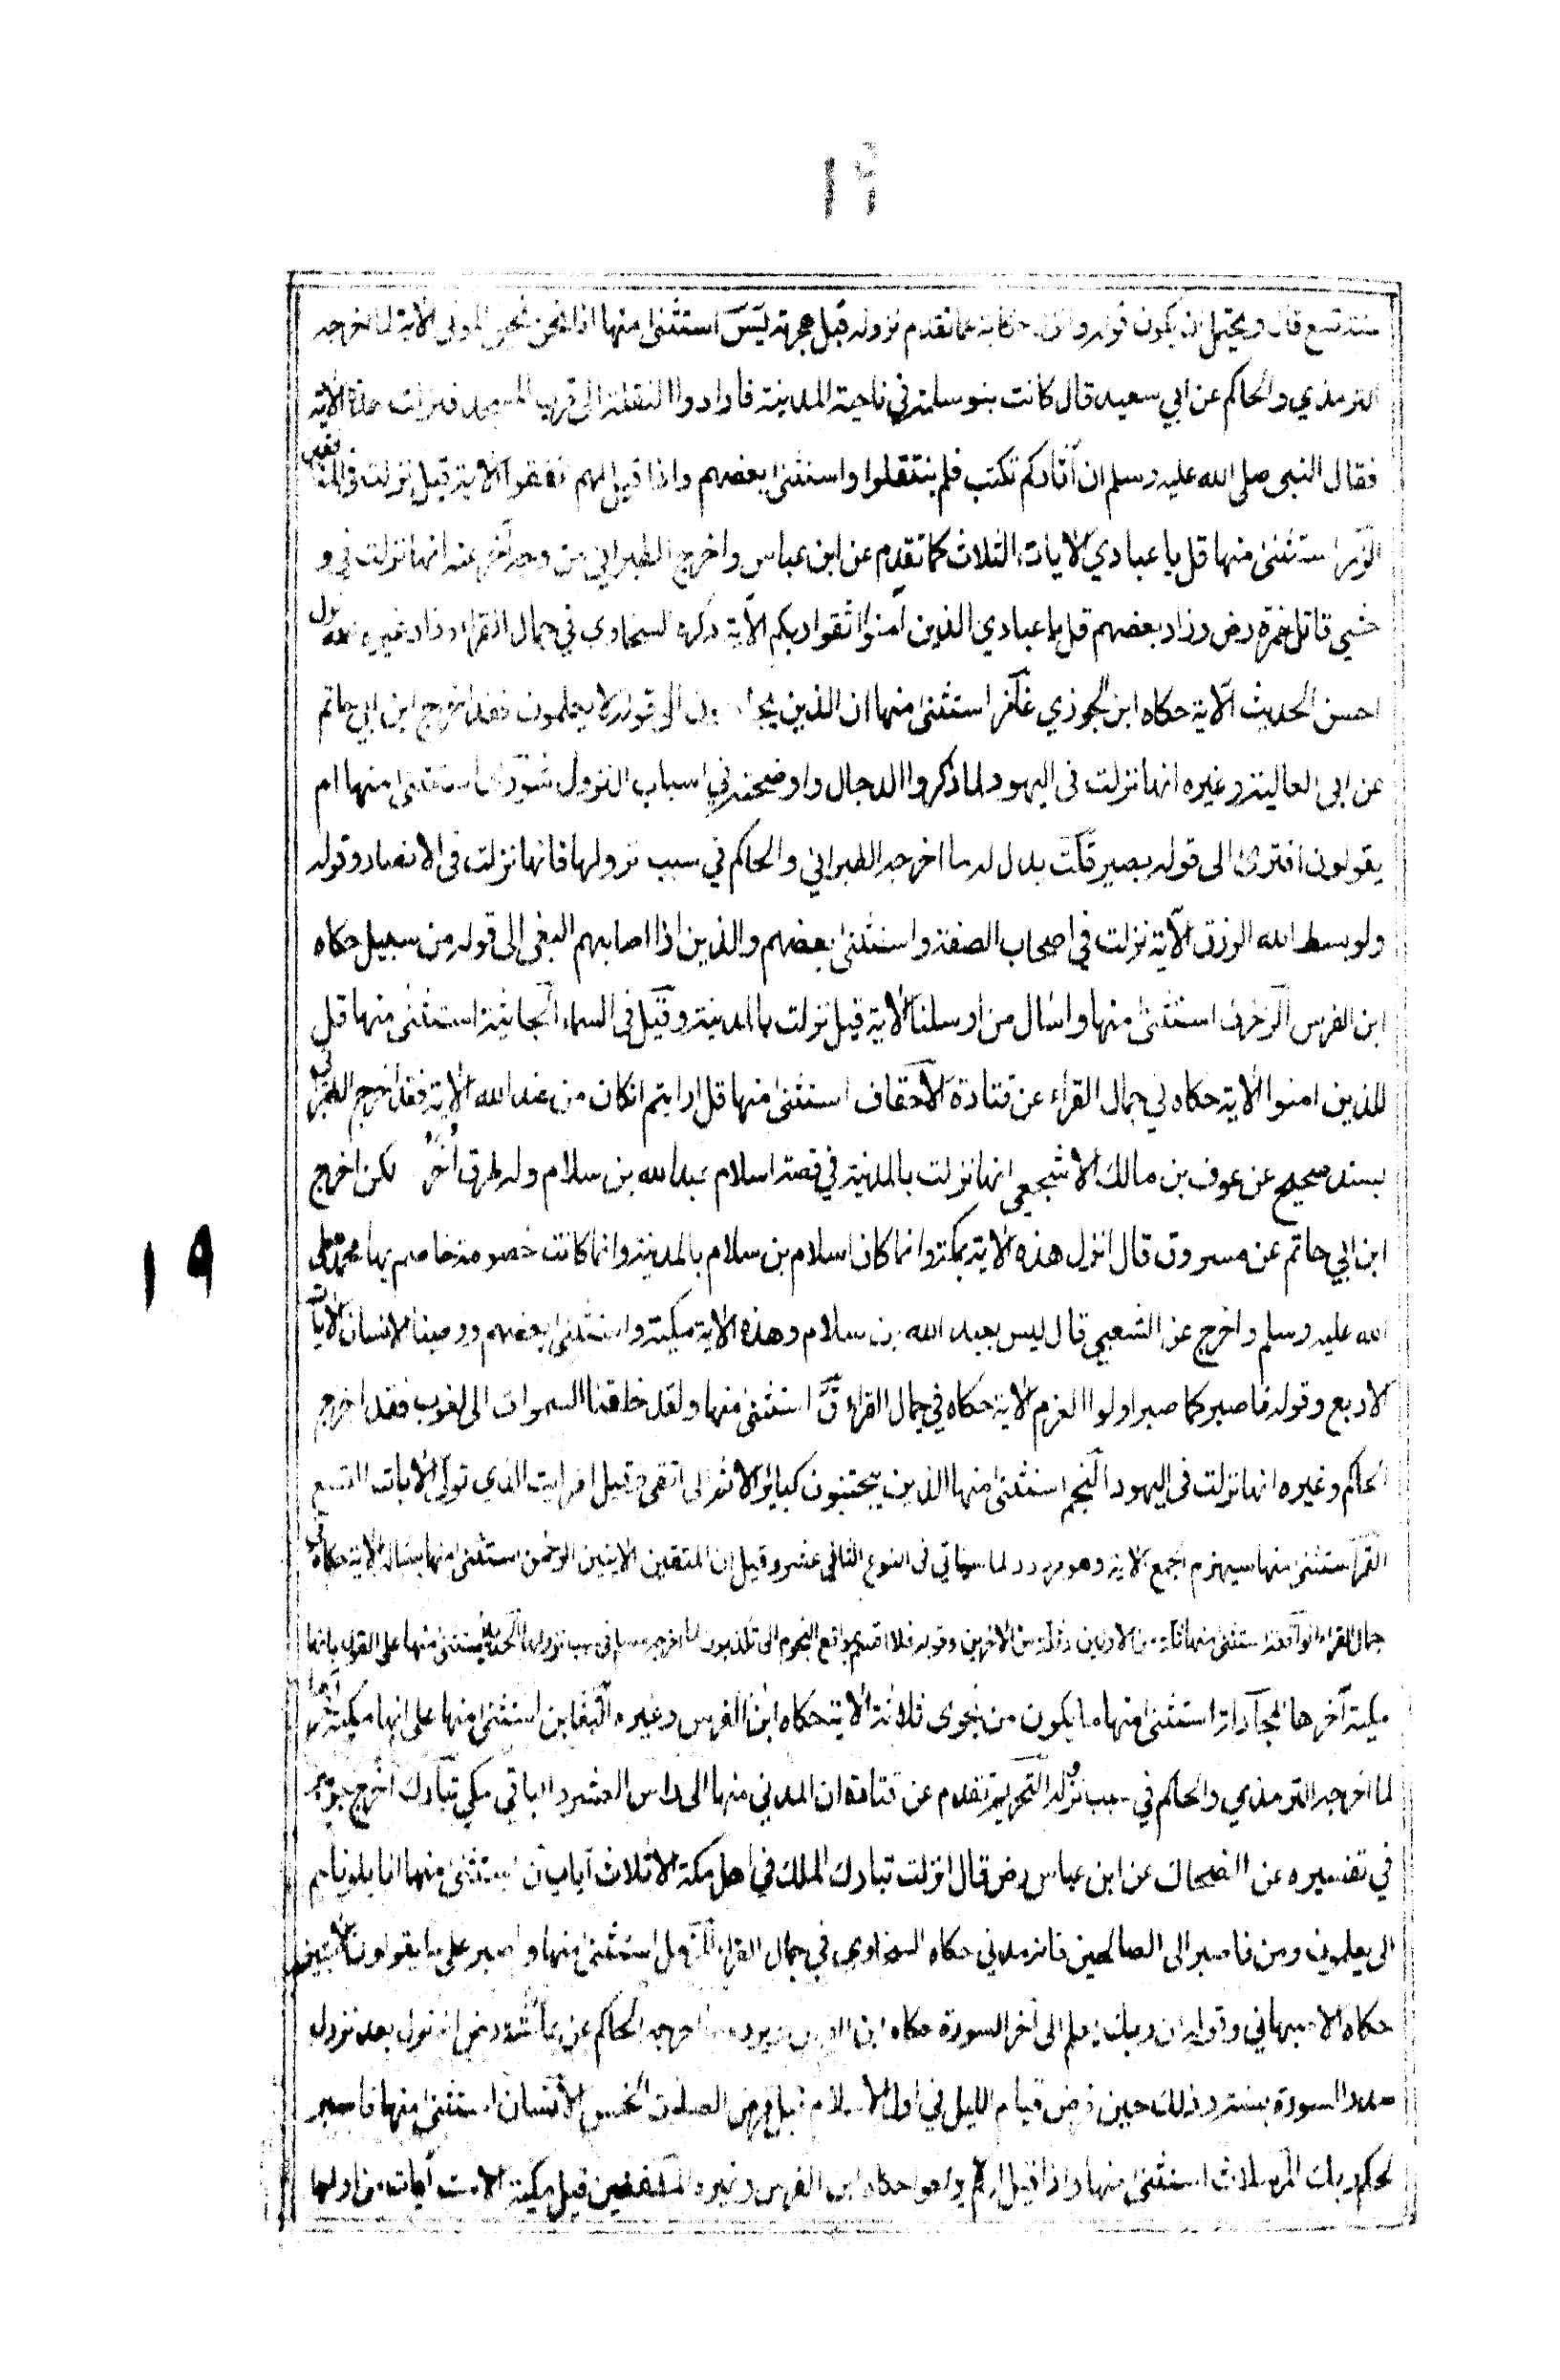 ١٩
سنة تسع قال ويحتمل ان يكون قوله وانزل حكاية عما تقدم نزوله قبل هجرته يس استثنى منها انا نحن نحي الموتى الاية لما اخرجه
الترمذي والحاكم عن ابي سعيد قال كانت بنو سلمة في ناحية المدينة فارادوا النقلة الى قرب المسجد فنزلت هذه الاية
فقال النبى صلى الله عليه وسلم ان آثاركم تكتب فلم ينتقلوا واستثنى بعضهم واذا قيل لهم انفقوا الاية قيل نزلت في المنافقين
الزمر استثنى منها قل يا عبادي الايات الثلاث كما تقدم عن ابن عباس واخرج الطبراني من وجه آخر عنه انها نزلت في و
حشي قاتل حمزة رض وزاد بعضهم قل يا عبادي الذين آمنوا اتقوا ربكم الآية ذكره السخاوي في جمال القراء وزاد غيره الله نزل
احسن الحديث الآية حكاه ابن الجوزي غافر استثنى منها ان الذين يجادلون الى قوله لا يعلمون فقد اخرج ابن ابي حاتم
عن ابى العالية وغيره انها نزلت فى اليهود لما ذكروا الدجال واوضحته في اسباب النزول شورى استثنى منها ام
يقولون افترى الى قوله بصير قلت بدلالة ما اخرجه الطبراني والحاكم في سبب نزولها فانها نزلت فى الانصار وقوله
ولو بسط الله الرزق الآية نزلت في اصحاب الصفة واستثنى بعضهم والذين اذا اصابهم البغى الى قوله من سبيل حكاه
ابن الفرس الزخرف استثنى منها واسال من ارسلنا الاية قيل نزلت بالمدينة وقيل فى السماء الجاثية استثنى منها قل
للذين امنوا الاية حكاه في جمال القراء عن قتادة الاحقاف استثنى منها قل ارايتم ان كان من عند الله الاية فقد اخرج الطبراني
بسند صحيح عن عوف بن مالك الاشجعي انها نزلت بالمدينة في قصة اسلام عبد الله بن سلام وله طرق اُخَرُ لكن اخرج
ابن ابي حاتم عن مسروق قال انزل هذه الاية بمكة وانما كان اسلام بن سلام بالمدينة وانما كانت خصومة خاصم بها محمد صلى
الله عليه وسلم واخرج عن الشعبي قال ليس بعبد الله بن سلام وهذه الاية مكية واستثنى بعضهم ووصينا الانسان الايات
الاربع وقوله فاصبر كما صبر اولوا العزم الاية حكاه في جمال القراء ق استثنى منها ولقد خلقنا السموات الى لغوب فقد اخرج
الحاكم وغيره انها نزلت فى اليهود النجم استثنى منها الذين يجتنبون كبائر الاثم الى اتقى وقيل افرايت الذي تولى الايات التسع
القمر استثنى منها سيهزم الجمع الاية وهو مردود لما سياتي فى النوع الثاني عشر وقيل ان المتقين الايتين الرحمن استثنى منها يساله الاية حكاه في
جمال القراء الواقعة استثنى منها ثلة من الاولين وثلة من الاخرين وقوله فلا اقسم بمواقع النجوم الى تكذبون لما اخرجه مسلم في سبب نزولها الحديد يستثنى منها على القول بانها
مكية آخرها المجادلة استثنى منها ما يكون من نجوى ثلاثة الاية حكاه ابن الفرس وغيره التغابن استثنى منها على انها مكية آخرها
لما اخرجه الترمذي والحاكم في سبب نزوله التحريم تقدم عن قتادة ان المدني منها الى راس العشر والباقي مكي تبارك اخرج جويبر
في تفسيره عن الضحاك عن ابن عباس رض قال انزلت تبارك الملك في اهل مكة الا ثلاث آيات ن استثنى منها انا بلوناهم
الى يعلمون ومن فاصبر الى الصالحين فانه مدني حكاه السخاوي في جمال القراء المزمل استثنى منها واصبر على ما يقولون الايتين
حكاه الاصبهاني وقوله ان ربك يعلم الى آخر السورة حكاه ابن الفرس ويرده ما اخرجه الحاكم عن عائشة رض انه نزل بعد نزول
صدر السورة بسنة وذلك حين فرض قيام الليل في اول الاسلام قبل فرض الصلوت الخمس الانسان استثنى منها فاصبر
لحكم ربك المرسلات استثنى منها واذا قيل لهم اركعوا حكاه ابن الفرس وغيره المطففين قيل مكية الا ست آيات من اولها
١٩